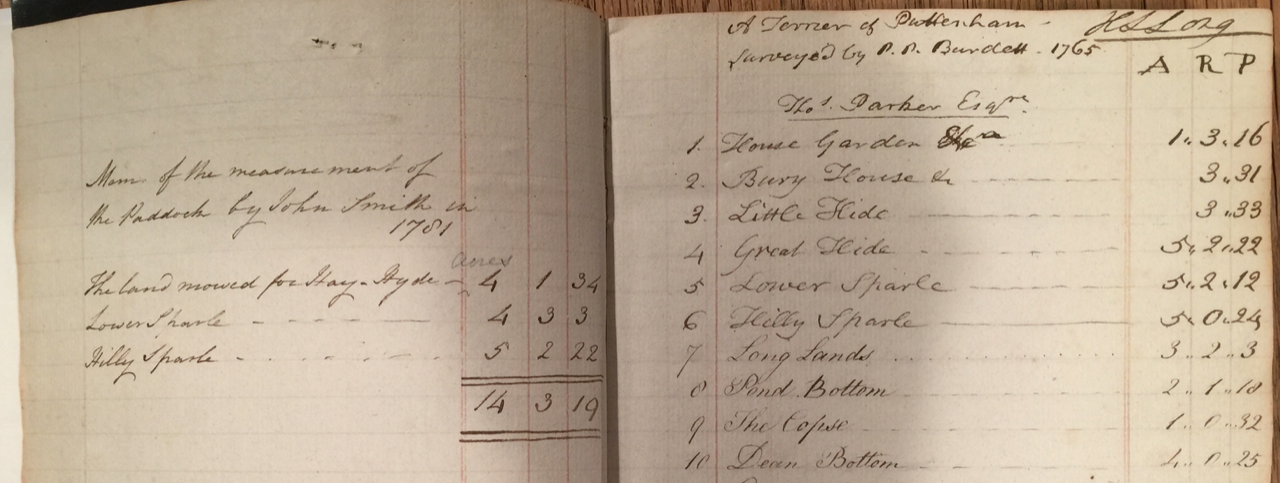 Mem. of the measurement of
the Paddock by John Smith in
1781
acres
The land mowed for Hay - Hyde - 4 1 34
Lower Sparle - - - - - - 4 3 3
Hilly Sparle - - - - - - 5 2 22
14 3 19
A Terrier of Puttenham - H L Long
Surveyed by P. P. Burdett - 1765
A R P
Thos. Parker Esqre.
1. House Garden &c 1 .. 3 .. 16
2. Bury House & 3 .. 31
3. Little Hide 3 .. 33
4 Great Hide 5 .. 2 .. 22
5 Lower Sparle 5 .. 2 .. 12
6 Hilly Sparle 5 .. 0 .. 24
7 Long Lands 3 .. 2 .. 3
8 Pond Bottom 2 .. 1 .. 18
9 The Copse 1 .. 0 .. 32
10 Dean Bottom 4 .. 0 .. 25